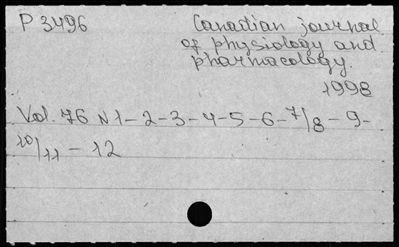 P 3496 Canadian journal
of physiology and
pharmacology.
1998
Vol. 76 N 1-2-3-4-5-6-7/8-9-
10/11-12